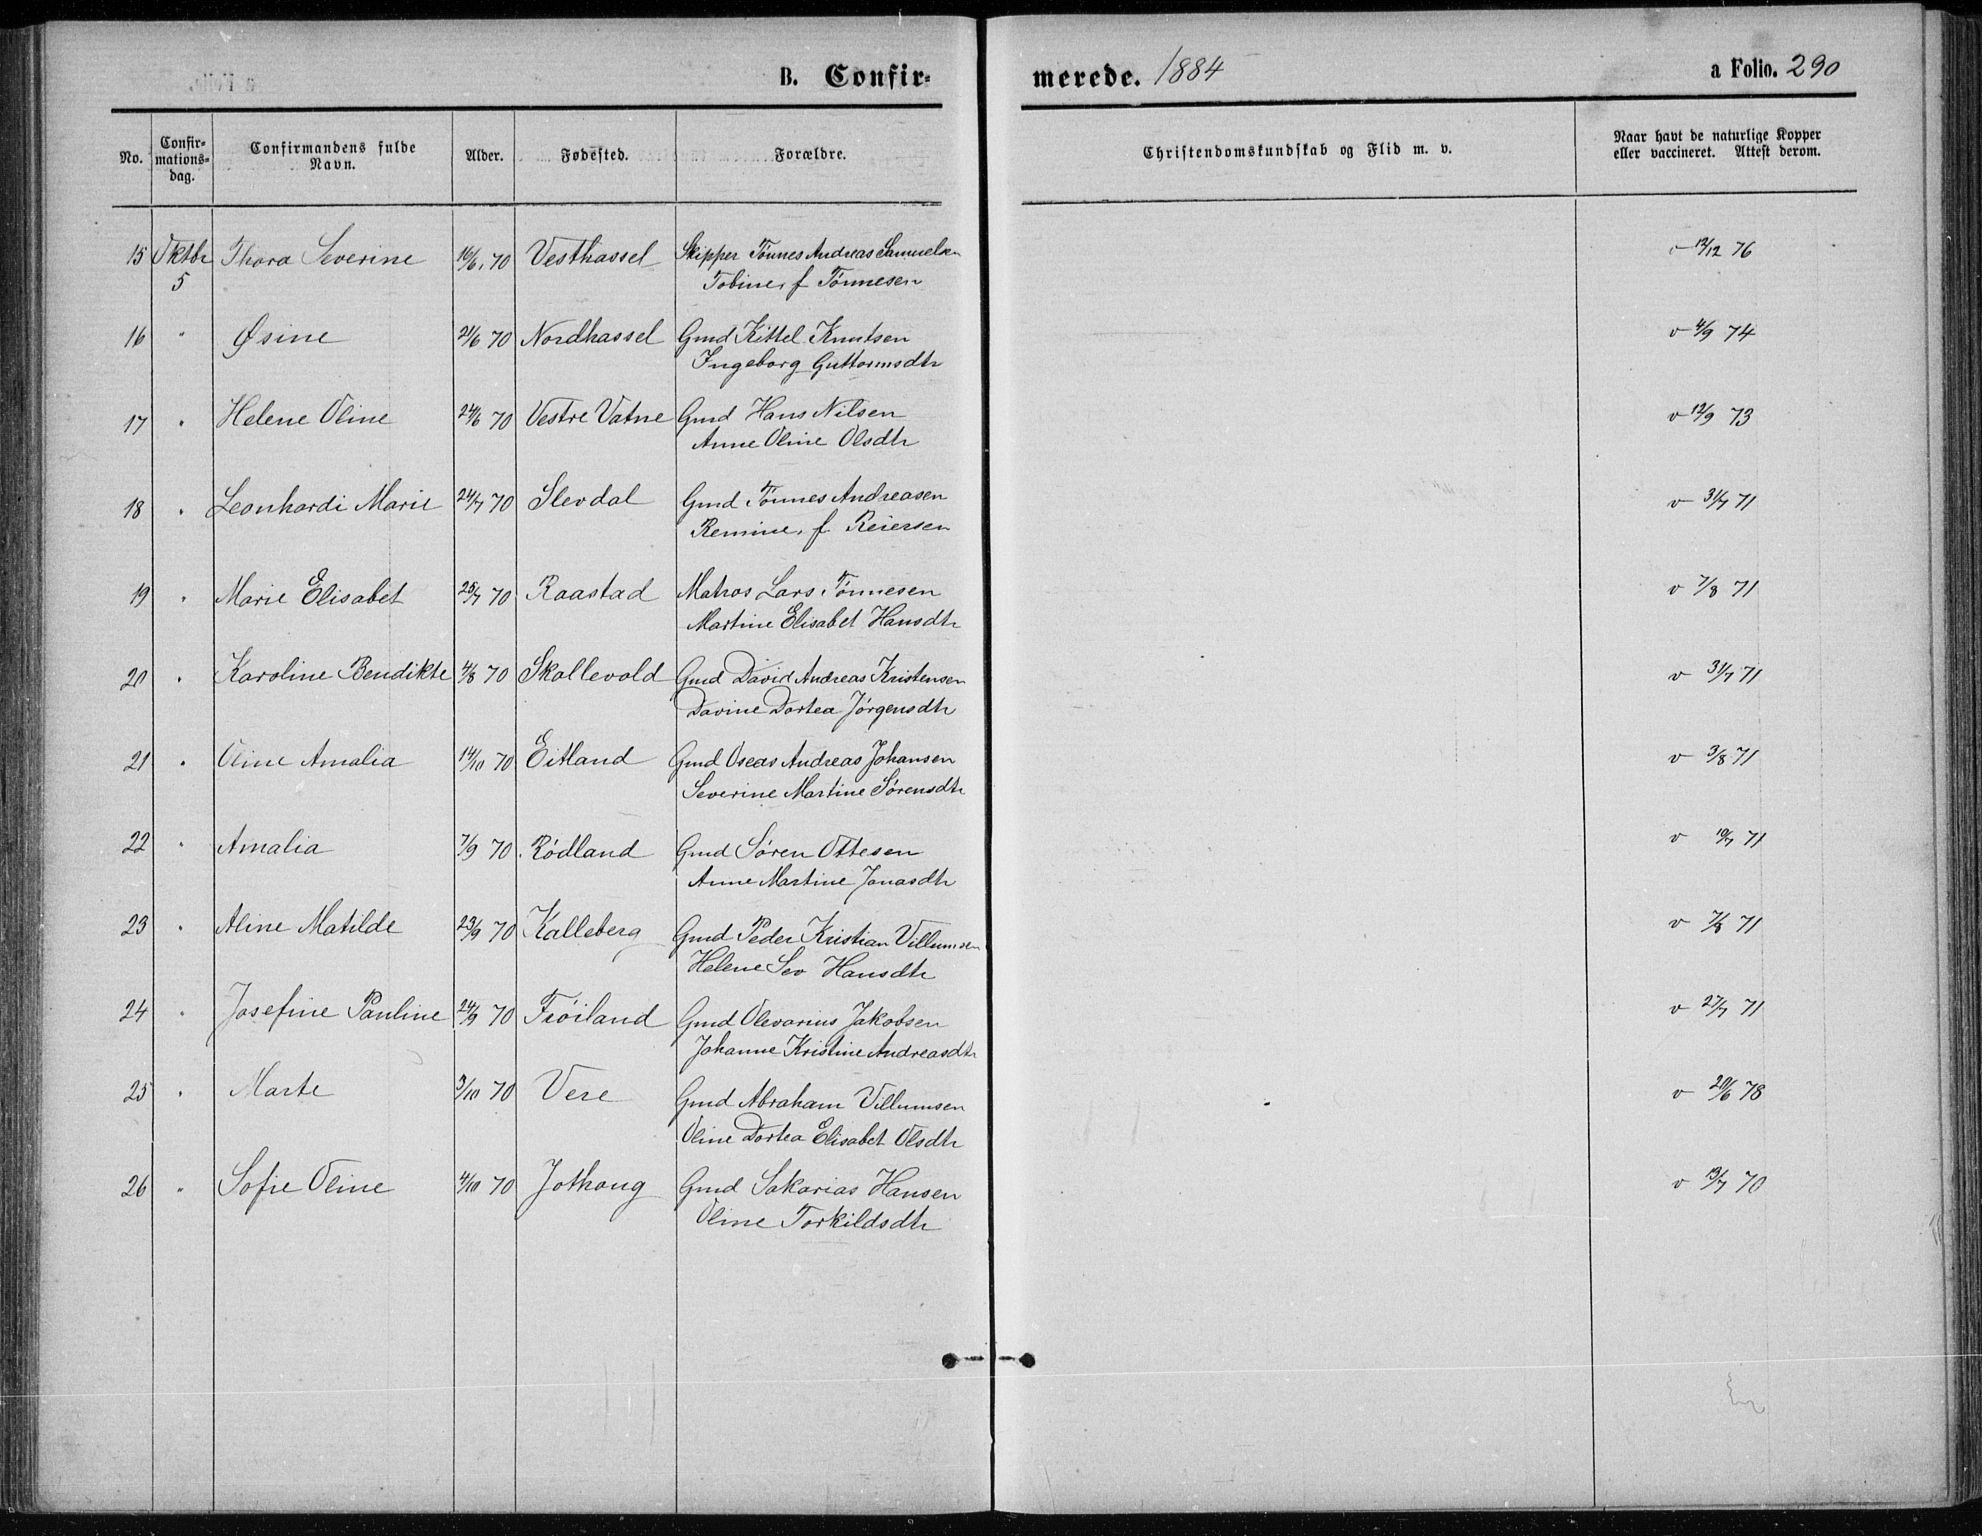 B. Confir-
merede. 1884
a Folio. 290
No.
Confir-
mations-
dag.
Confirmandens fulde
Navn.
Alder.
Fødested.
Forældre.
Christendomskundskab og Flid m. v.
Naar havt de naturlige Kopper
eller vaccineret. Attest derom.
15 Oktbr Thora Severine 16/6 70 Vesthassel Skipper Tønnes Andreas Samuelsen v 12/12 76
5 Tobine f Tønnesen
16 " Øsine 21/6 70 Nordhassel Gmd Kittel Knutsen v 4/9 74
Ingeborg Guttormsdtr
17 " Helene Oline 24/6 70 Vestre Vatne Gmd Hans Nilsen v 12/9 73
Anne Oline Olsdtr
18 " Leonhardi Marie 24/7 70 Slevdal Gmd Tønnes Andreasen v 31/7 71
Remine f Reiersen
19 " Marie Elisabet 25/7 70 Raastad Matros Lars Tønnesen v 7/8 71
Martine Elisabet Hansdtr
20 " Karoline Bendikte 4/8 70 Skollevold Gmd David Andreas Kristensen v 31/7 71
Davine Dortea Jørgensdtr
21 " Oline Amalia 14/10 70 Eitland Gmd Oseas Andreas Johansen v 3/8 71
Severine Martine Sørensdtr
22 " Amalia 7/9 70 Rødland Gmd Søren Ottesen v 19/7 71
Anne Martine Jonasdtr
23 " Aline Matilde 23/9 70 Kalleberg Gmd Peder Kristian Villumsen v 7/8 71
Helene Sev Hansdtr
24 " Josefine Pauline 24/9 70 Frøiland Gmd Olevarius Jakobsen v 27/7 71
Johanne Kristine Andreasdtr
25 " Marte 3/10 70 Vere Gmd Abraham Villumsen v 20/6 78
Oline Dortea Elisabet Olsdtr
26 " Sofie Oline 4/10 70 Jothoug Gmd Sakarias Hansen v 13/7 70
Oline Torkildsdtr